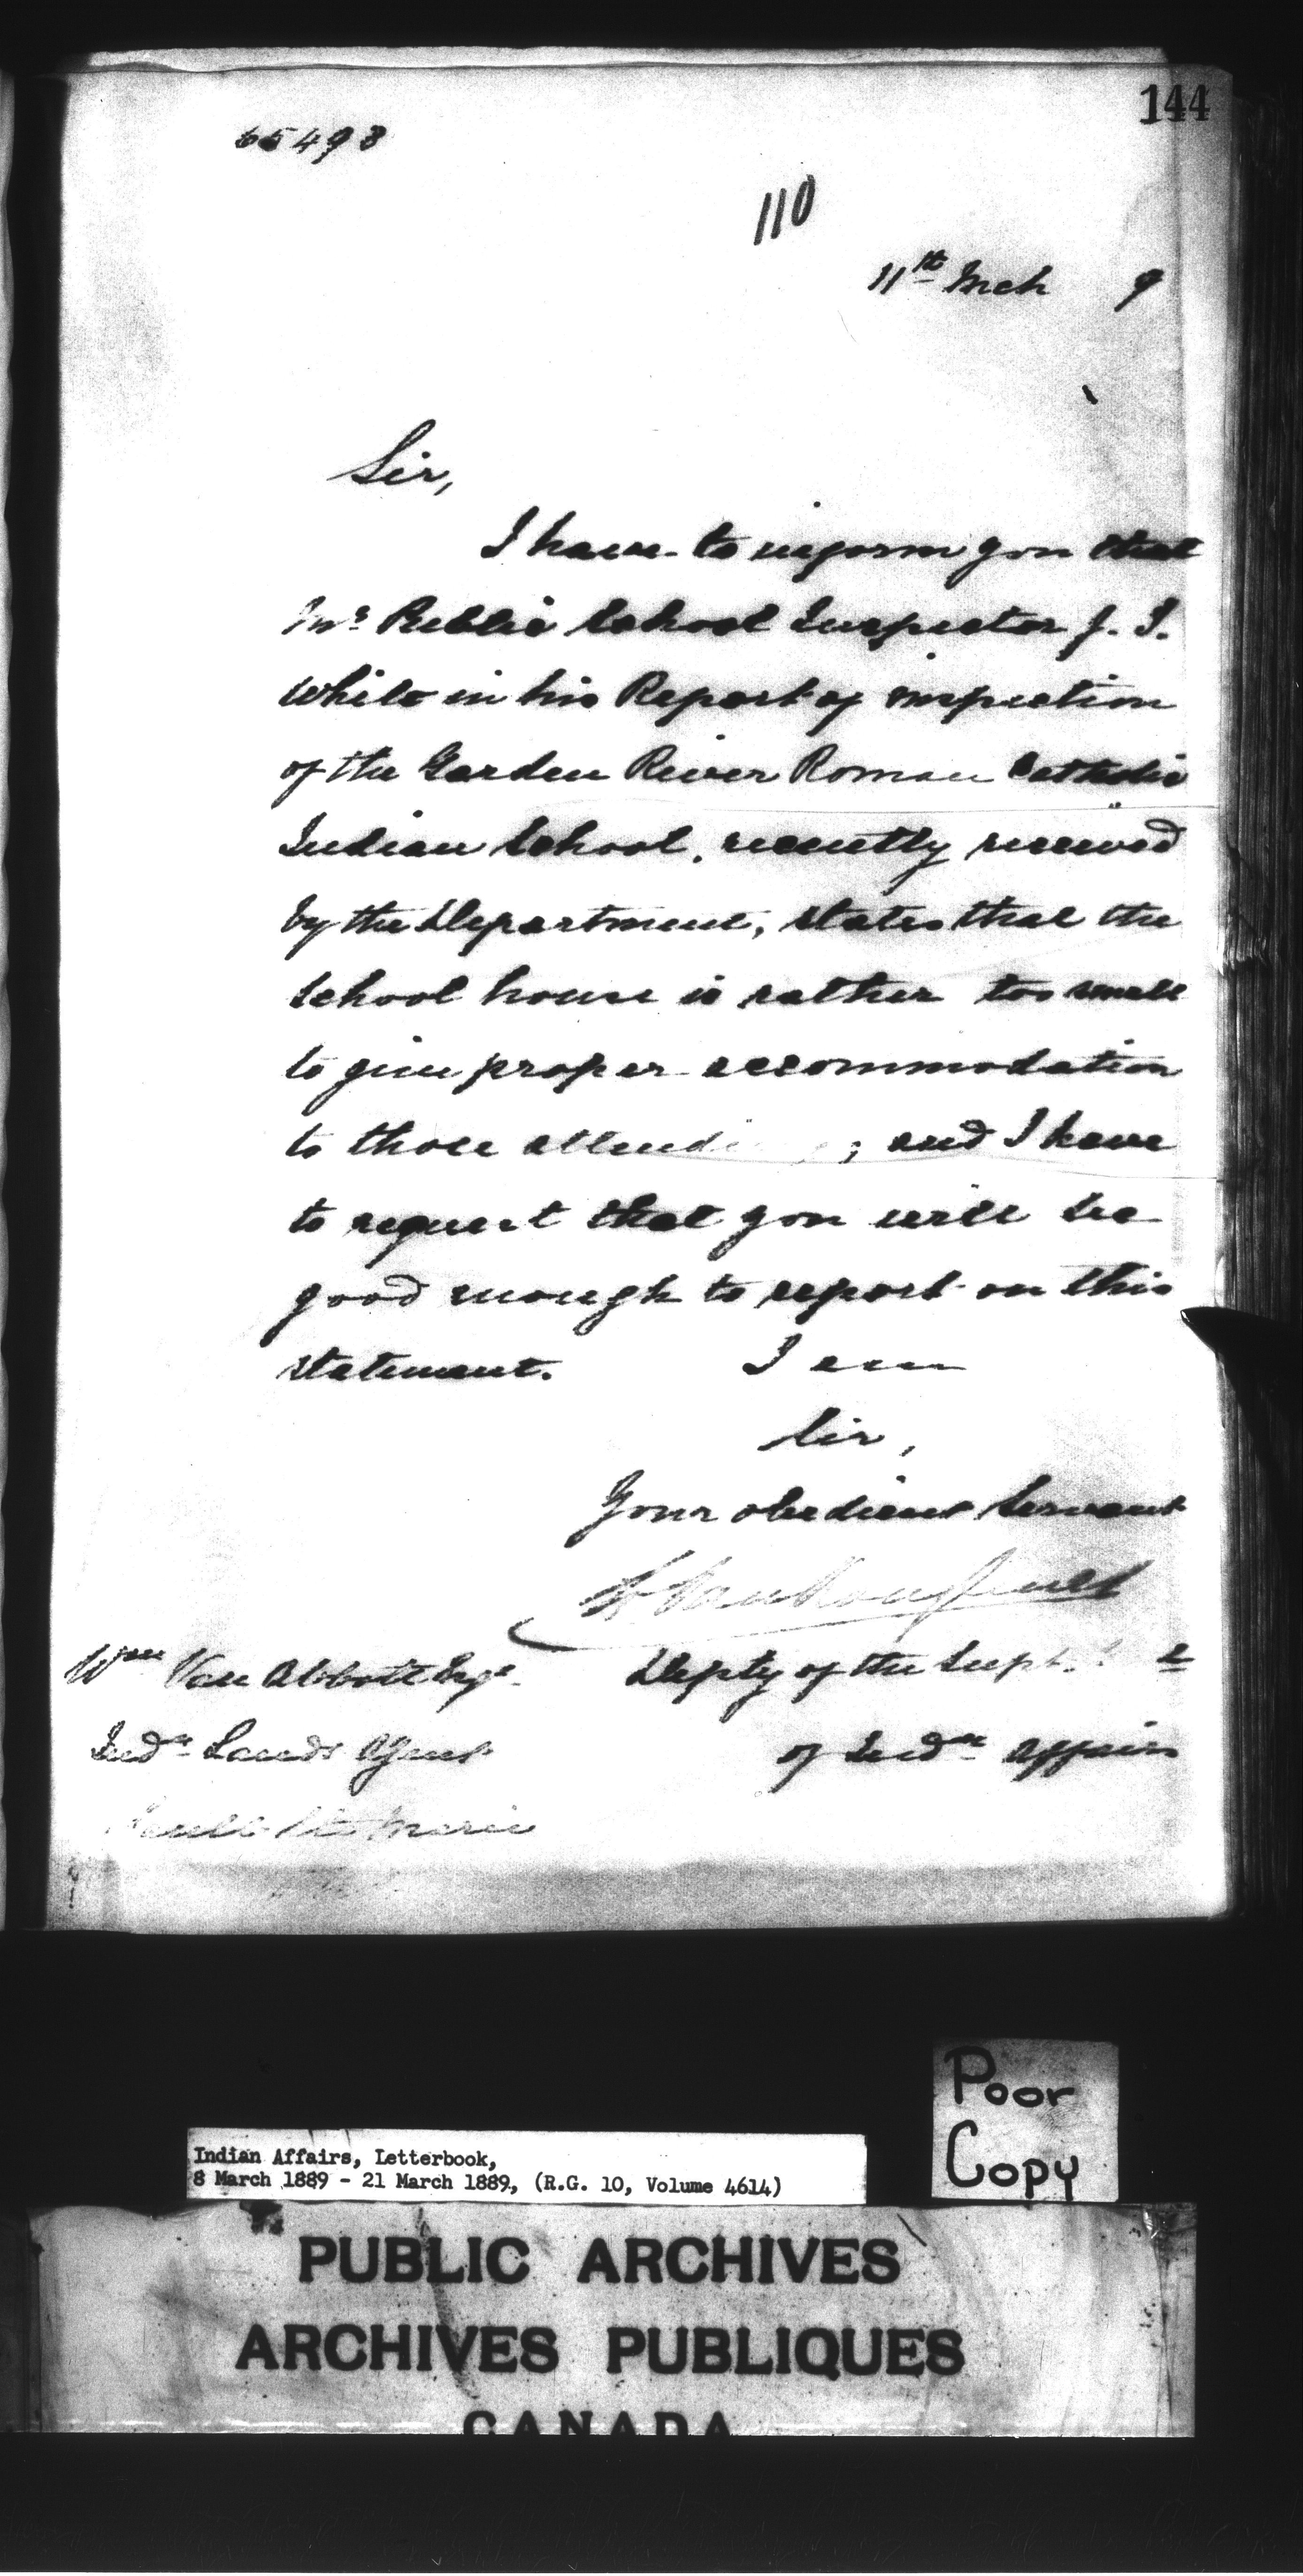 144
65493
110
11th Mch 9
Sir,
I have to inform you that
Mr Public School Inspector J. I.
White in his Report of inspection
of the Garden River Roman Catholic
Indian School, recently received
by the Department, states that the
School house is rather too small
to give proper accommodation
to those attending; and I have
to request that you will be
good enough to report on this
statement. I am
Sir,
Your obedient Servant
L. Vankoughnet
Wm Van Abbott Esqre Depty of the Supt. 
Indn Lands Agent of Indn Affairs
Sault Ste Marie
Poor
Copy
Indian Affairs, Letterbook,
8 March 1889 - 21 March 1889, (R.G. 10, Volume 4614)
PUBLIC ARCHIVES
ARCHIVES PUBLIQUES
CANADA